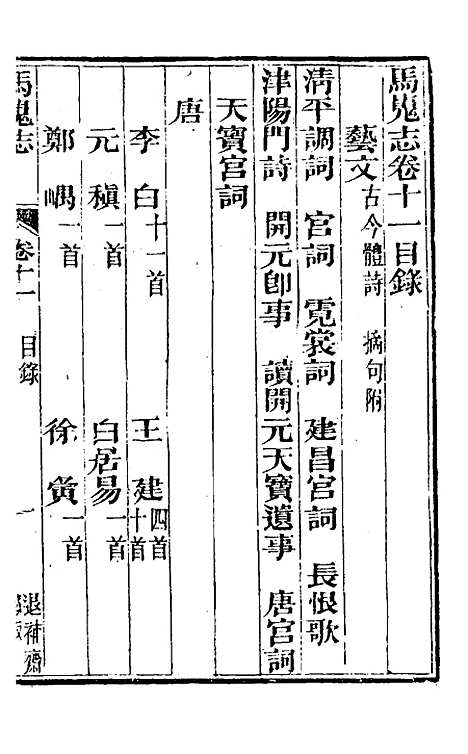 馬嵬志卷十一目錄
藝文古今體詩 摘句附
清平調詞 宮詞 霓裳詞 建昌宮詞 長恨歌
津陽門詩 開元即事 讀開元天寶遺事 唐宮詞
天寶宮詞
唐
李白十一首 王建四首十首
元稹一首 白居易一首
鄭嵎一首 徐夤一首
馬嵬志 卷十一 目錄 一 退補齋